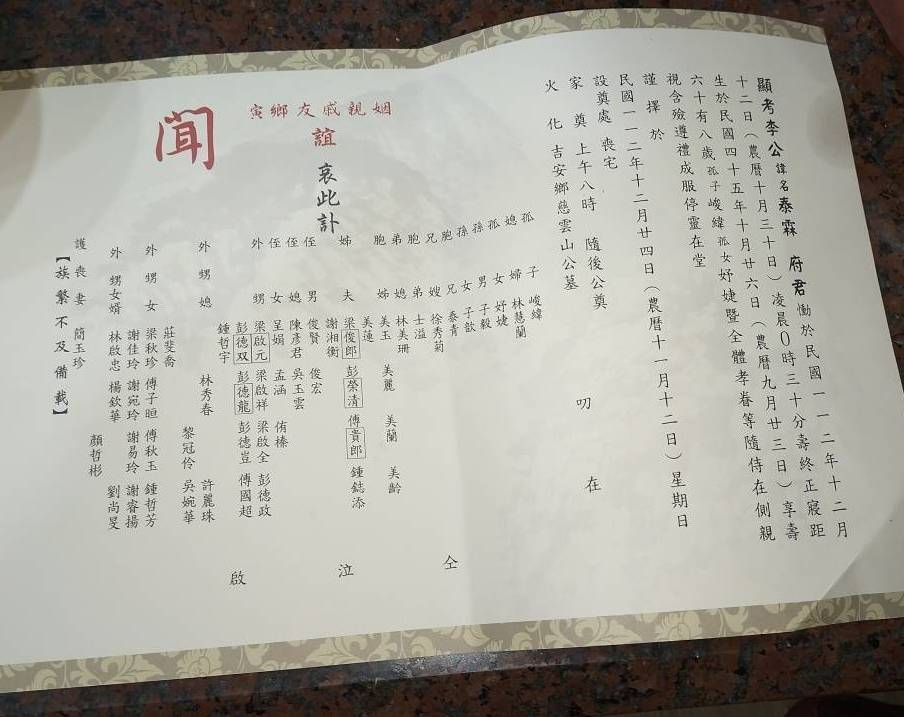 顯考李公諱名泰霖 府君慟於民國一一二年十二月
十二日（農曆十月三十日）凌晨0時三十分壽終正寢距
生於民國四十五年十月廿六日（農曆九月廿三日）享壽
六十有八歲孤子峻緯孤女妤婕暨全體孝眷等隨侍在側親
視含殮遵禮成服停靈在堂
謹擇於
民國一一二年十二月廿四日（農曆十一月十二日）星期日
設奠處 喪宅
家奠 上午八時 隨後公奠
火化 吉安鄉慈雲山公墓
叨在
姻親戚友鄉寅
誼
哀此訃
聞
孤子 峻緯
孤媳婦 林慧蘭
孤女 妤婕
孫男 子毅
孫女 子歆
胞兄 泰青
胞兄嫂 徐秀菊
胞弟 士溢
弟媳 林美珊
胞姊 美玉 美蓮 美麗 美蘭 美齡
姊夫 梁俊郎 彭榮清 傅貴郎 鍾鋕添 謝湘衡
侄男 俊賢 俊宏
侄媳 陳彥君 吳玉雲
侄女 呈娟 孟涵 侑榛
外甥 梁啟元 梁啟祥 梁啟全 彭德政
彭德双 彭德龍 彭德豈 傅國超
鍾哲宇
外甥媳 林秀春 許麗珠
黎冠伶 吳婉華
莊斐喬
外甥女 梁秋珍 傅子晅 傅秋玉 鍾哲芳
謝佳玲 謝宛玲 謝易玲 謝睿揚
外甥女婿 林啟忠 楊欽華 劉尚旻
顏哲彬
護喪妻 簡玉珍
【族繁不及備載】
仝
泣
啟